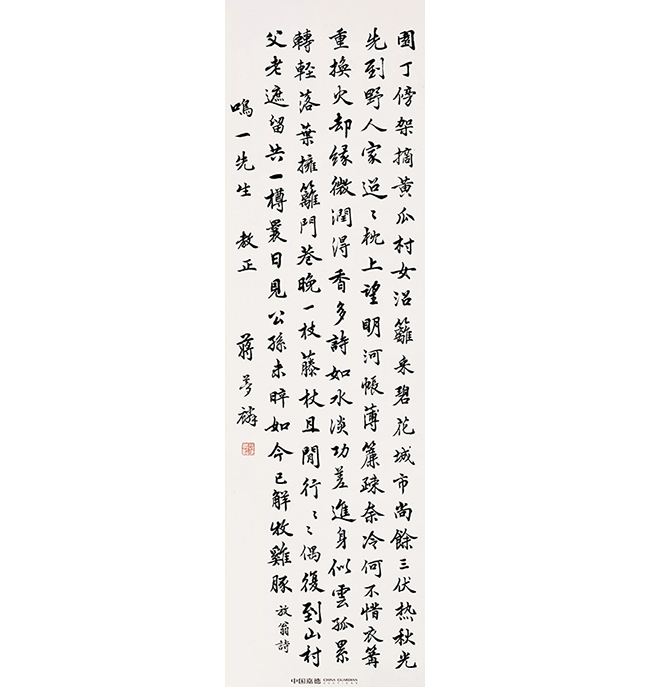 園丁傍架摘黃瓜村女沿籬采碧花城市尚餘三伏热秋光
先到野人家迢〻枕上望明河帳薄簾疎奈冷何不惜衣篝
重換火却緣微潤得香多詩如水淡功差進身似雲孤累
轉輕落葉擁籬門巷晚一枝藤杖且閒行〻〻偶復到山村
父老遮留共一樽曩日見公孫未晬如今已解牧雞豚 放翁詩
鳴一先生 教正 蔣夢麟
中国嘉德 CHINA GUARDIAN